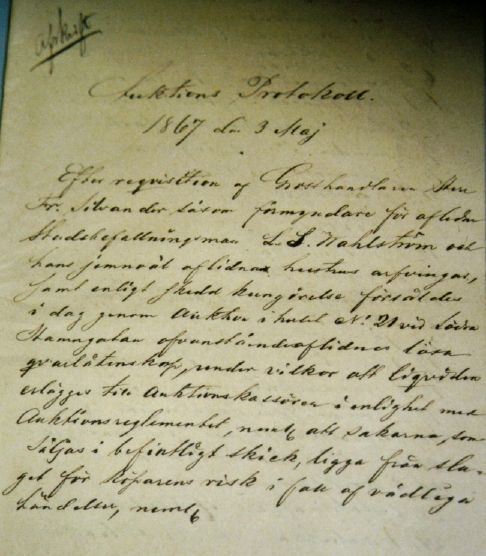 Afskrift
Auktions Protokoll.
1867 den 3 Maj
Efter reqvisition af Grosshandlaren Herr
Fr. Silvander såsom förmyndare för aflidne
Stadsbefallningsman L. S. Wahlström och
hans jemnväl aflidna hustrus arfvingar,
samt enligt skedd kungörelse försåldes
i dag genom Auktion i huset No 21 vid Södra
Hamngatan ofvanstående aflidnes lösa
qvarlåtenskap, under vilkor att liqviden
erlägges till Auktionskassören i enlighet med
Auktionsreglementet, att sakerna, som
säljas i befintligt skick, ligga från sla-
get för köparens risk i fall af vådliga
händelser,